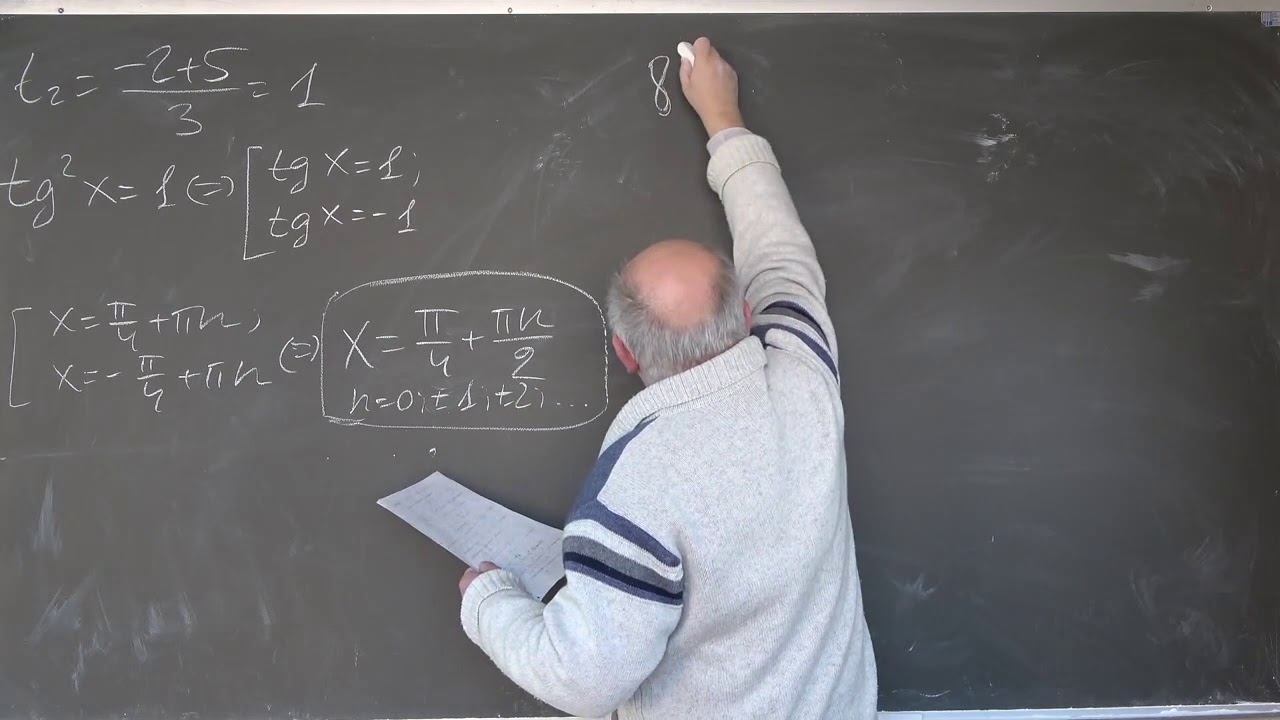 t₂ = (-2+5)/3 = 1
tg²x = 1 (=) [ tg x = 1;
tg x = -1
[ x = π/4 + πn;
x = - π/4 + πn (=) x = π/4 + πn/2
n = 0; ±1; ±2; ...
8